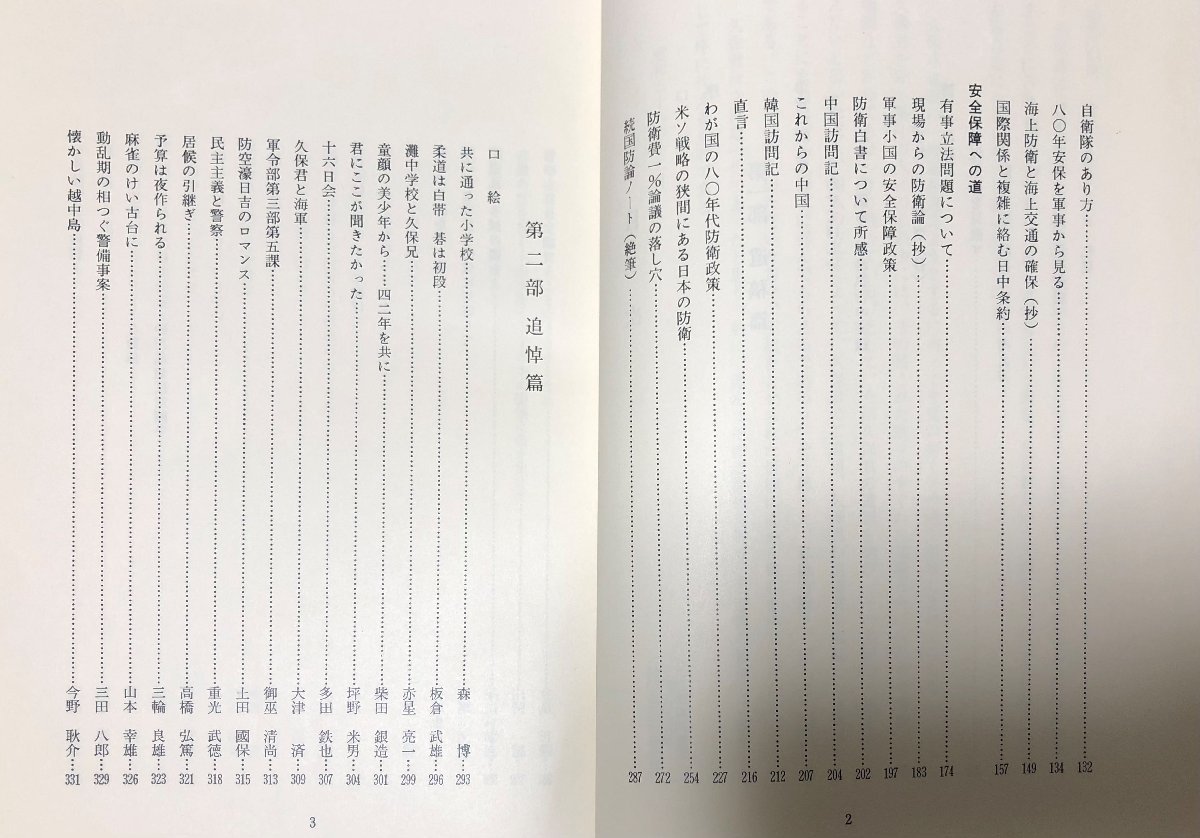 自衛隊のあり方……132
八〇年安保を軍事から見る……134
海上防衛と海上交通の確保（抄）……149
国際関係と複雑に絡む日中条約……157
安全保障への道
有事立法問題について……174
現場からの防衛論（抄）……183
軍事小国の安全保障政策……197
防衛白書について所感……202
中国訪問記……204
これからの中国……207
韓国訪問記……212
直言……216
わが国の八〇年代防衛政策……227
米ソ戦略の狭間にある日本の防衛……254
防衛費一％論議の落し穴……272
続国防論ノート（絶筆）……287
2
第二部 追悼篇
口絵
共に通った小学校……森 博…293
柔道は白帯 碁は初段……板倉 武雄…296
灘中学校と久保兄……赤星 亮一…299
童顔の美少年から……四二年を共に……柴田 銀造…301
君にここが聞きたかった……坪野 米男…304
十六日会……多田 鉄也…307
久保君と海軍……大津 済…309
軍令部第三部第五課……御巫 清尚…313
防空濠日吉のロマンス……土田 國保…315
民主主義と警察……重光 武徳…318
居候の引継ぎ……高橋 弘篤…321
予算は夜作られる……三輪 良雄…323
麻雀のけい古台に……山本 幸雄…326
動乱期の相つぐ警備事案……三田 八郎…329
懐かしい越中島……今野 耿介…331
3